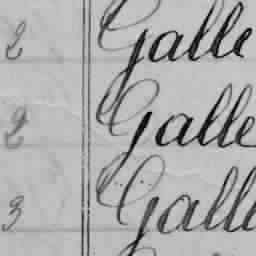 2 Galle
2 Galle
3 Galle